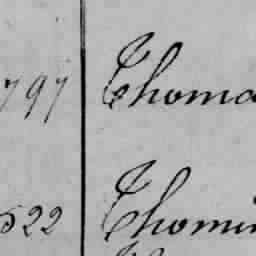 797 Thoma
522 Thomin